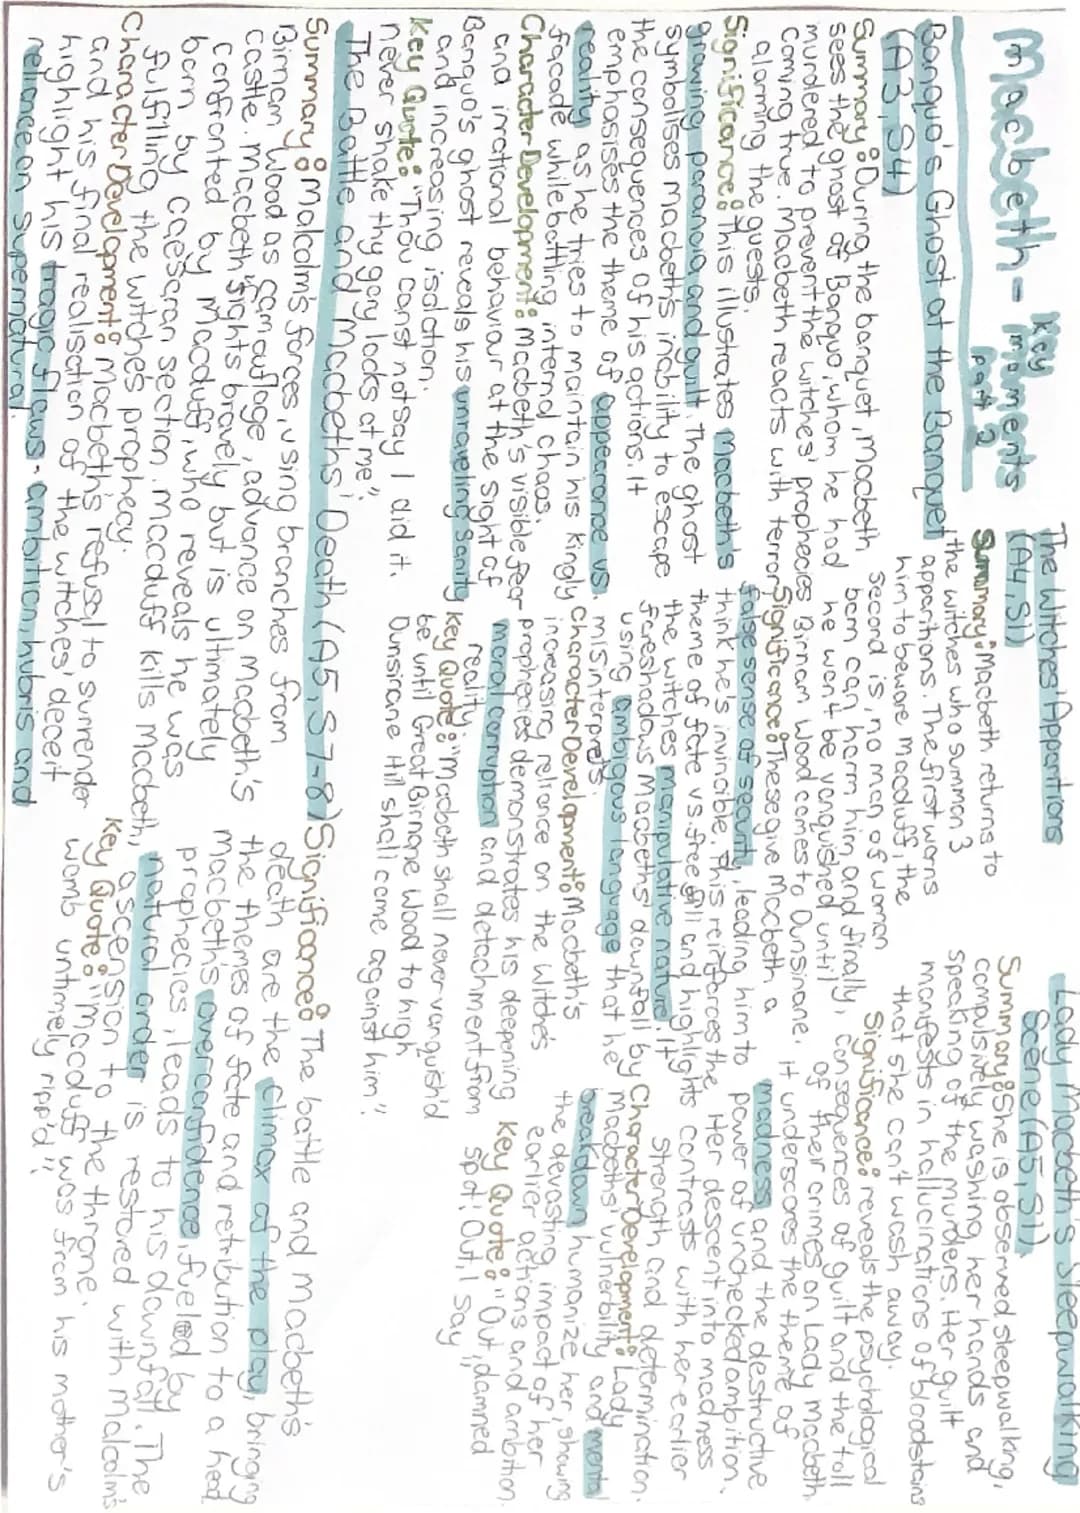 Macbeth - Key moments
part 2
Banquo's Ghost at the Banquet
(A3, S4)
Summary: During the banquet, Macbeth
sees the ghost of Banquo, whom he had
murdered to prevent the witches' prophecies
coming true. Macbeth reacts with terror
alarming the guests.
Significance: This illustrates Macbeth's
growing paranoia and guilt. The ghost
symbolises Macbeth's inability to escape
the consequences of his actions. It
emphasises the theme of appearance vs.
reality as he tries to maintain his kingly
facade while battling internal chaos.
Character Development: Macbeth's visible fear
and irrational behaviour at the sight of
Banquo's ghost reveals his unraveling sanity
and increasing isolation.
Key Quote: "Thou canst not say I did it.
never shake thy gory locks at me".
The Witches' Apparitions
(A4, S1)
Summary: Macbeth returns to
the witches who summon 3
apparitions. The first warns
him to beware Macduff, the
second is, no man of women
born can harm him, and finally,
he won't be vanquished until
Birnam Wood comes to Dunsinane.
Significance: These give Macbeth a
false sense of security, leading him to
think he's invincible. This reinforces the
theme of fate vs. free will and highlights
the witches manipulative nature. It
foreshadows Macbeths' downfall by
using ambigous language that he
misinterprets.
Character Development: Macbeth's
increasing reliance on the Witches
prophecies demonstrates his deepening
moral corruption and detachment from
reality.
Key Quote: "Macbeth shall never vanquish'd
be until Great Birnane Wood to high
Dunsinane Hill shall come against him".
Lady Macbeth's Sleepwalking
Scene (A5, S1).
Summary: She is observed sleepwalking,
compulsively washing her hands and
speaking of the murders. Her guilt
manifests in hallucinations of bloodstains
that she can't wash away.
Significance: reveals the psychological
consequences of guilt and the toll
of their crimes on Lady Macbeth.
It underscores the theme of
madness and the destructive
power of unchecked ambition.
Her descent into madness
contrasts with her earlier
strength and determination.
Character Development: Lady
Macbeths' vulnerbility and mental
breakdown humanize her, showing
the devasting impact of her
earlier actions and ambition.
Key Quote: "Out, damned
spot! Out, I say"
The Battle and Macbeths' Death (A5, S7-8)
Summary: Malcolm's forces, using branches from
Birnam Wood as camouflage, advance on Macbeth's
castle. Macbeth fights bravely but is ultimately
confronted by Macduff, who reveals he was
born by caesaran section. Macduff kills Macbeth,
fulfilling the witches prophecy.
Character Development: Macbeth's refusal to surrender
and his final realisation of the witches' deceit
highlight his tragic flaws - ambition, hubris and
reliance on supernatural.
Significance: The battle and Macbeth's
death are the climax of the play, bringing
the themes of fate and retribution to a head
Macbeths overconfidence, fueled by
prophecies, leads to his downfall. The
natural order is restored with Malcolm's
ascension to the throne.
Key Quote: "Macduff was from his mother's
womb untimely ripp'd".